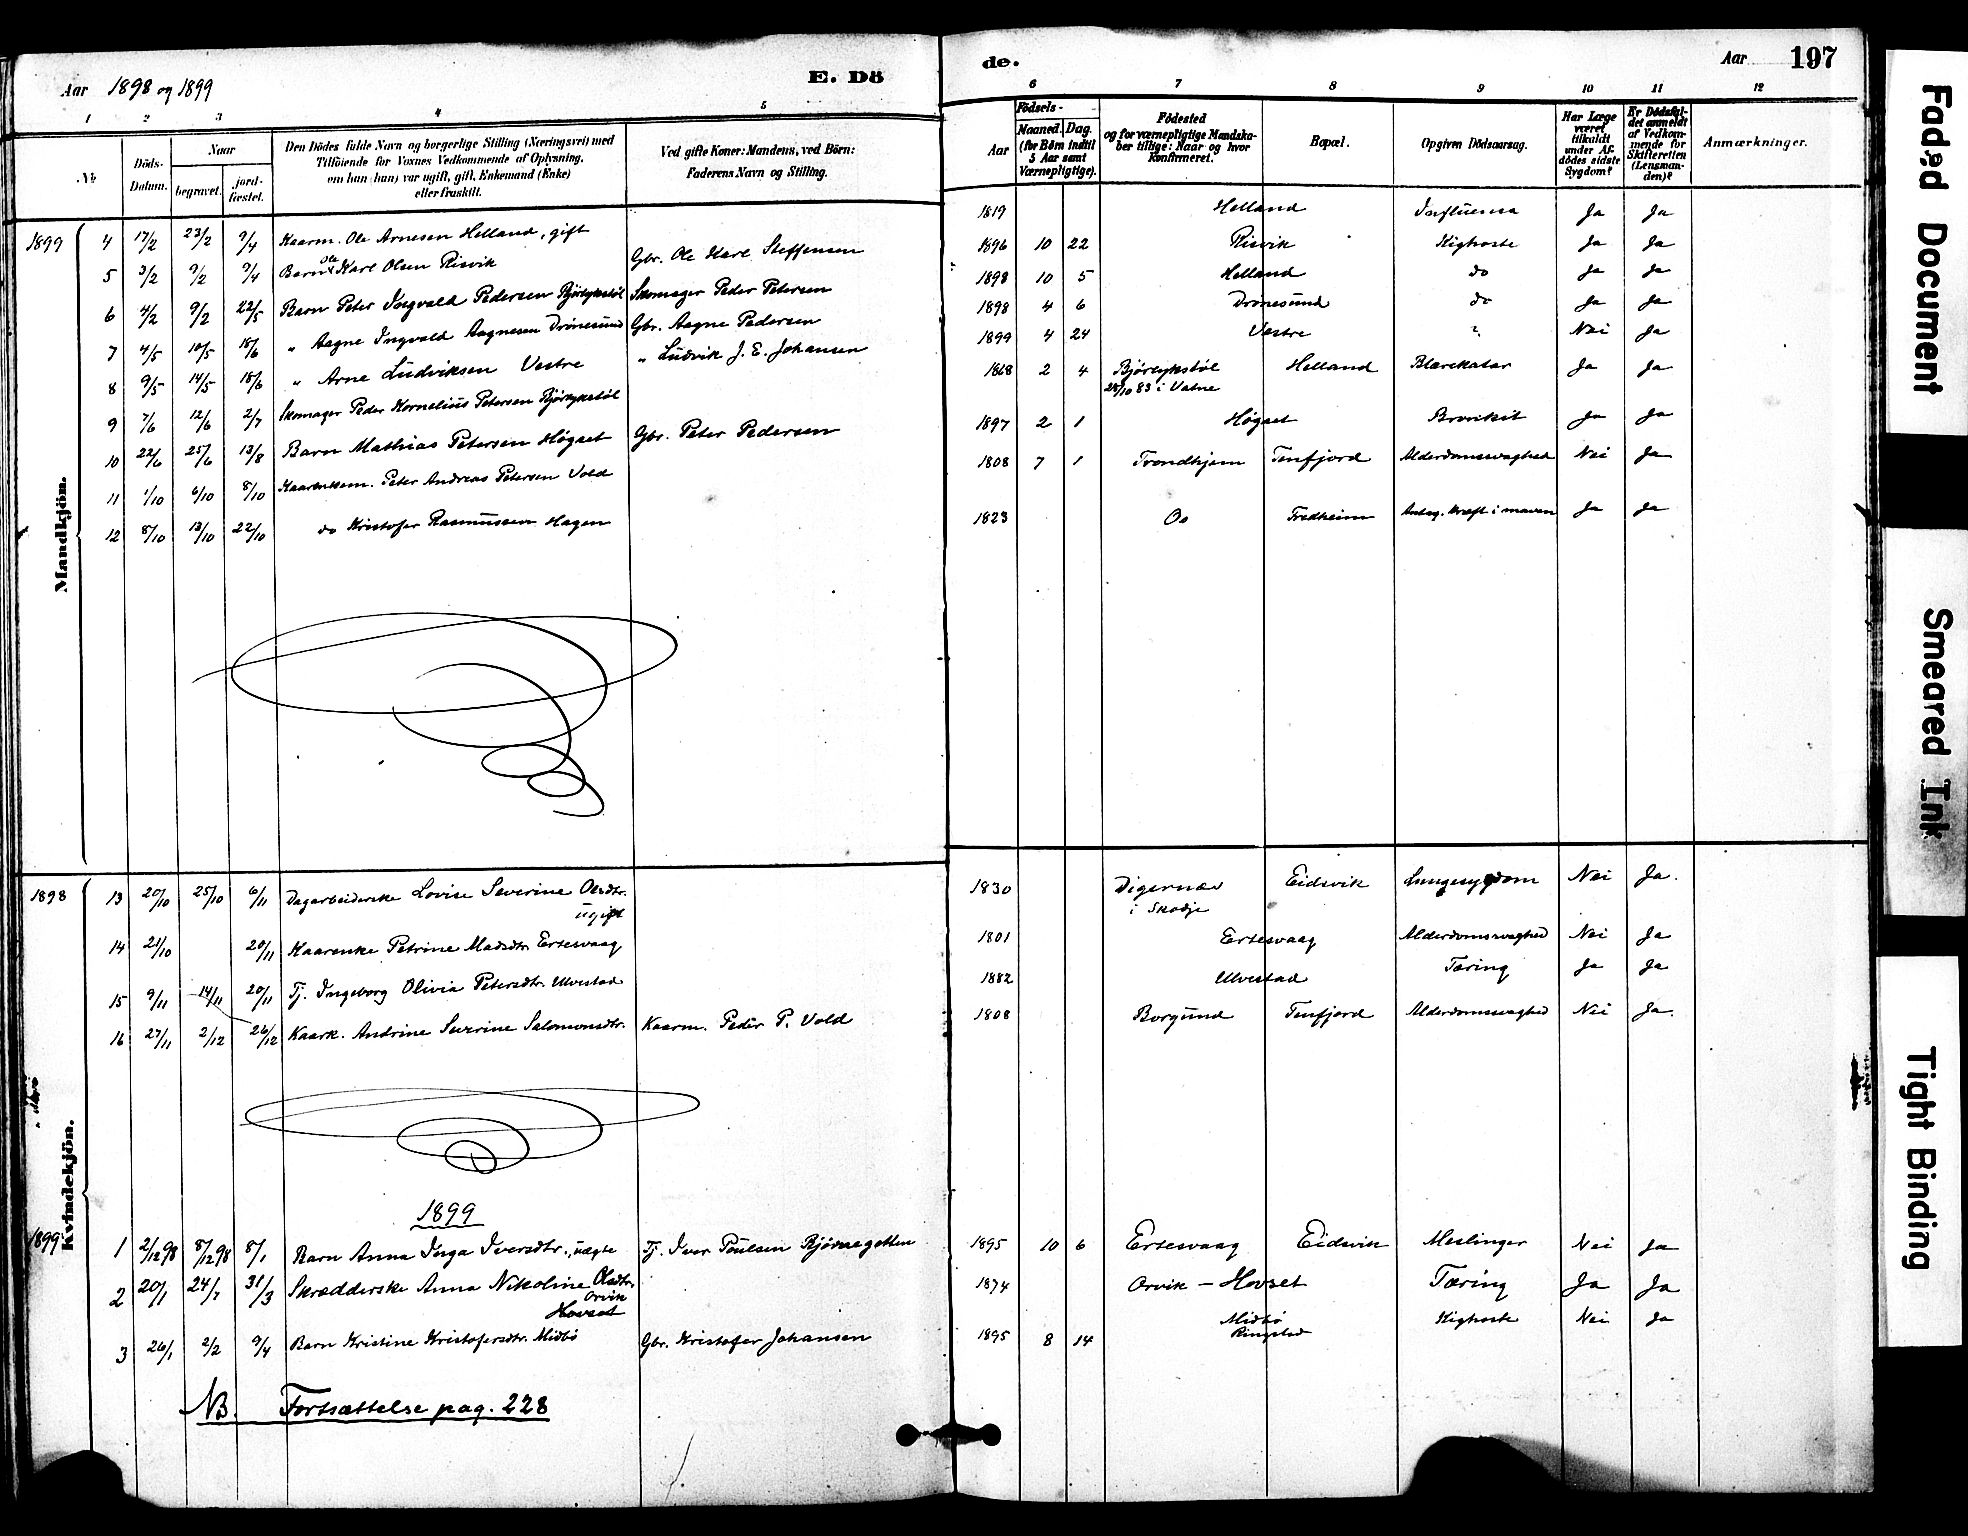 Aar 1898 og 1899 E. Dö de. Aar 197
1 2 3 4 5 6 7 8 9 10 11 12
№ Döds-Datum. Naar begravet. jord-fæstet. Den Dödes fulde Navn og borgerlige Stilling (Næringsvei) med Tilföiende for Voxnes Vedkommende af Oplysning, om hun (hun) var ugift, gift, Enkemand (Enke) eller fraskilt. Ved gifte Koner: Mandens, ved Börn: Faderens Navn og Stilling. Födsels- Aar Maaned. Dag. (for Börn indtil 5 Aar samt Værnepligtige). Födested og for værnepligtige Mandskaber tillige: Naar og hvor Konfirmeret. Bopæl. Opgiven Dödsaarsag. Har Læge været tilkaldt under Afdödes sidste Sygdom? Er Dödsfaldet anmeldt af Vedkommende for Skifteretten (Lensmanden)? Anmærkninger.
Mandkjön.
1899 4 17/2 23/2 9/4 Kaarm. Ole Arnesen Helland, gift 1819 Helland Influensa Ja Ja
5 3/2 9/2 9/4 Barn Ole Karl Olsen Risvik Gbr. Ole Karl Steffensen 1896 10 22 Risvik Kighoste Ja Ja
6 4/2 9/2 22/5 Barn Peter Ingvald Pedersen Björlykstöl Skomager Peder Petersen 1898 10 5 Helland do Ja Ja
7 4/5 10/5 18/6 " Aagne Ingvald Aagnesen Drönesund Gbr. Aagne Pedersen 1898 4 6 Drönesund do Ja Ja
8 9/5 14/5 18/6 " Arne Ludviksen Vestre " Ludvik J. E. Johansen 1899 4 24 Vestre ? Nei Ja
9 7/6 12/6 2/7 Skomager Peder Kornelius Petersen Björlykstöl 1868 2 4 Björlykstöl Helland Blærekatar Ja Ja
28/10 83 i Vatne
10 22/6 25/6 13/8 Barn Mathias Petersen Högset Gbr. Peter Pedersen 1897 2 1 Högset Bronkit Ja Ja
11 1/10 6/10 8/10 Kaarenkem. Peter Andreas Petersen Vold 1808 7 1 Trondhjem Tenfjord Alderdomssvaghed Nei Ja
12 8/10 13/10 22/10 do Kristofer Rasmussen Hagen 1823 Os Fredheim Antag. kræft i maven Ja Ja
Kvindekjön.
1898 13 20/10 25/10 6/11 Dagarbeiderske Lovise Severine Olsdtr. 1830 Digernæs Eidsvik Lungesygdom Nei Ja.
ugift i Skodje
14 21/10 20/11 Kaarenke Petrine Madsdtr. Ertesvaag 1801 Ertesvaag Alderdomssvaghed Nei Ja
15 9/11 14/11 20/11 Tj. Ingeborg Olivia Petersdtr. Ulvestad 1882 Ulvestad Tæring Ja Ja
16 27/11 2/12 26/12 Kaark. Andrine Severine Salomonsdtr. Kaarm. Peder P. Vold 1808 Borgund Tenfjord Alderdomssvaghed Nei Ja.
1899
1899 1 2/12 98 8/12 98 8/1 Barn Anna Inga Iversdtr., uægte Tj. Iver Poulsen 1895 10 6 Ertesvaag Eidsvik Meslinger Nei Ja
2 20/1 24/1 31/3 Skrædderske Anna Nikoline Olsdtr. 1874 Orvik - Hovset Tæring Ja Ja
Orvik
Hovset
3 26/1 2/2 9/4 Barn Kristine Kristofersdtr. Midbö Gbr. Kristofer Johansen 1895 8 14 Midbö Kighoste Nei Ja
Ringstad
NB. Fortsættelse pag. 228
Faded Document
Smeared Ink
Tight Binding